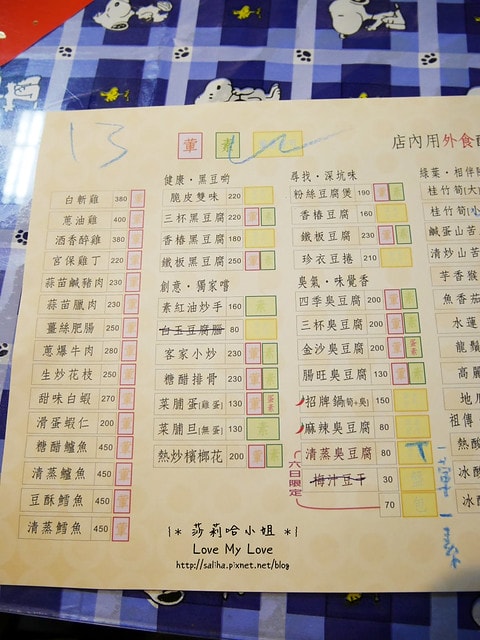 13
葷 素
店內用外食
白斬雞 380 葷
蔥油雞 400 葷
酒香醉雞 380 葷
宮保雞丁 220 葷
蒜苗鹹豬肉 230 葷
蒜苗臘肉 230 葷
薑絲肥腸 250 葷
蔥爆牛肉 280 葷
生炒花枝 250 葷
甜味白蝦 270 葷
滑蛋蝦仁 200 葷
糖醋鱸魚 450 葷
清蒸鱸魚 450 葷
豆酥鱈魚 450 葷
清蒸鱈魚 450 葷
健康・黑豆喲
脆皮雙味 220
三杯黑豆腐 220 葷 素
香椿黑豆腐 180
鐵板黑豆腐 250 葷 素
創意・獨家嚐
素紅油炒手 160 素
白玉豆腐腦 80
客家小炒 230 葷 素
糖醋排骨 230 葷 素
菜脯蛋(雞蛋) 130 葷 蛋素
菜脯旦(無蛋) 130 素
熱炒檳榔花 200 葷 素
尋找・深坑味
粉絲豆腐煲 190 葷 素
香椿豆腐 160
鐵板豆腐 230 葷 素
珍衣豆捲 210
臭氣・味覺香
四季臭豆腐 200 葷 素
三杯臭豆腐 200 葷 素
金沙臭豆腐 200 葷 蛋素
腸旺臭豆腐 130 葷 素
招牌鍋(筍+臭) 150
麻辣臭豆腐 80
清蒸臭豆腐 80
梅汁豆干 30
70
六日限定
綠葉・相伴
桂竹筍(大
桂竹筍(小
鹹蛋山苦
清炒山苦
芋香猴
魚香茄
水蓮
龍鬚
高麗
地瓜
祖傳
熱酸
冰酸
冰
|* 莎莉哈小姐 *|
Love My Love
http://saliha.pixnet.net/blog